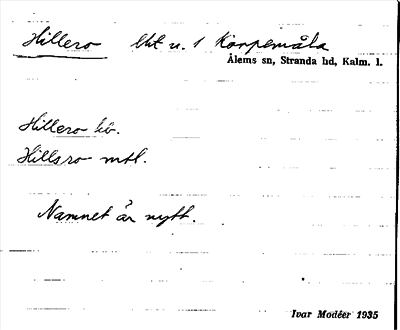 Hillero lht u. 1 Karpemåla
Ålems sn, Stranda hd, Kalm. l.
Hillero kb.
Hillsro mtl.
Namnet är nytt.
Ivar Modéer 1935